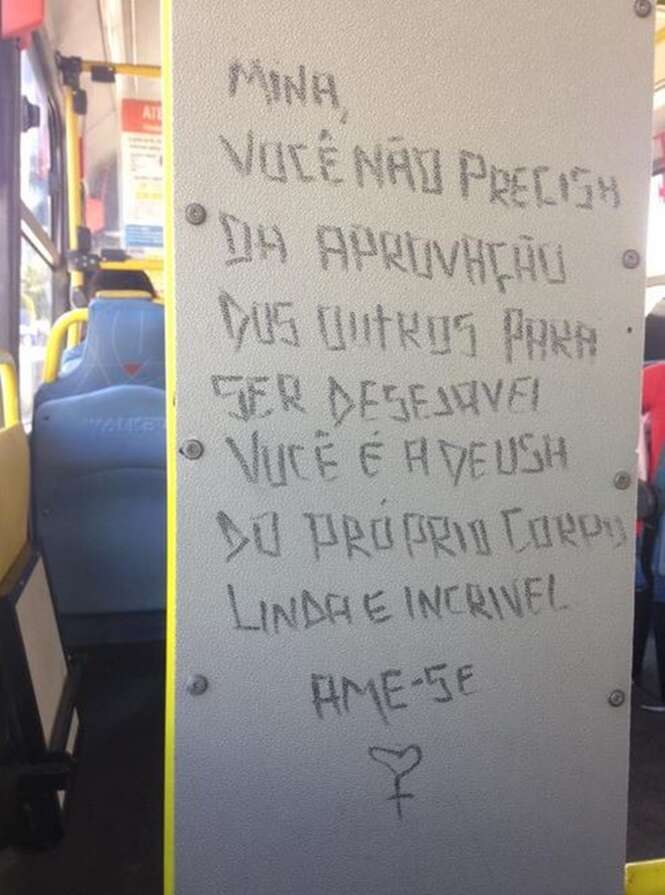 MINA,
VOCÊ NÃO PRECISA
DA APROVAÇÃO
DOS OUTROS PARA
SER DESEJAVEl
VOCÊ É A DEUSA
DO PRÓPRIO CORPO
LINDA E INCRIVEL
AME-SE